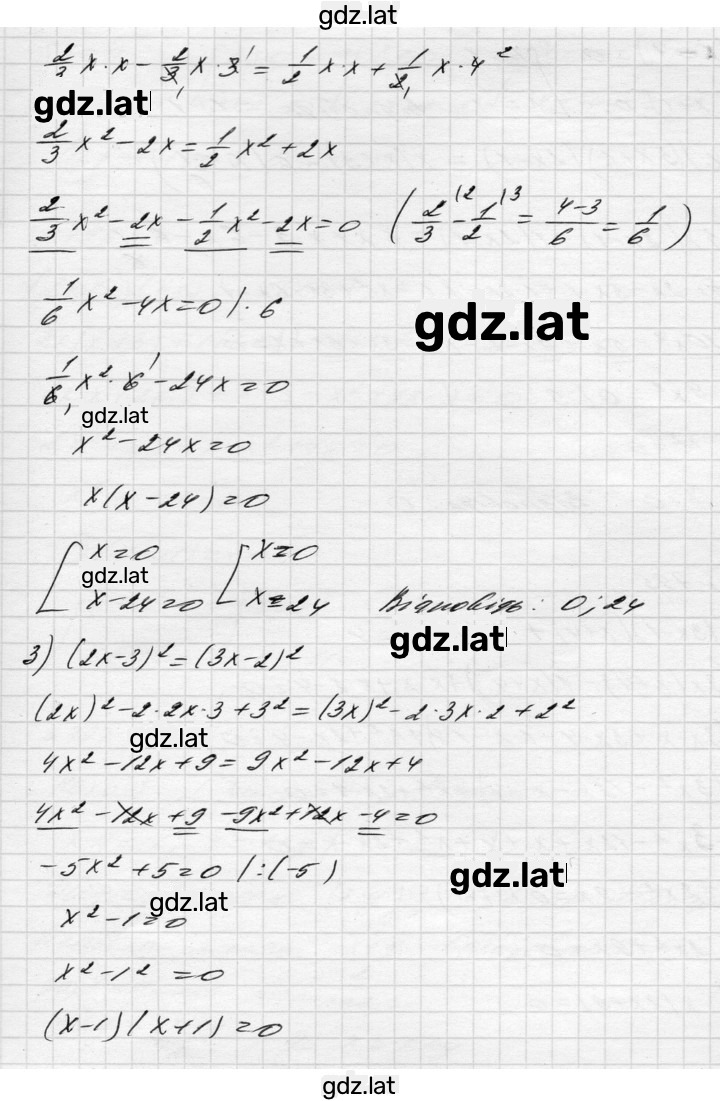 gdz.lat
2/3 x·x − 2/3 x·3 = 1/2 x·x + 1/2 x·4
gdz.lat
2/3 x² − 2x = 1/2 x² + 2x
2/3 x² − 2x − 1/2 x² − 2x = 0 (2/3 − 1/2 = (4−3)/6 = 1/6)
1/6 x² − 4x = 0 | · 6
gdz.lat
1/6 x² · 6 − 24x = 0
gdz.lat
x² − 24x = 0
x(x − 24) = 0
[ x = 0 [ x = 0
gdz.lat
x − 24 = 0 x = 24 Відповідь: 0; 24
gdz.lat
3) (2x−3)² = (3x−2)²
(2x)² − 2·2x·3 + 3² = (3x)² − 2·3x·2 + 2²
gdz.lat
4x² − 12x + 9 = 9x² − 12x + 4
4x² − 12x + 9 − 9x² + 12x − 4 = 0
−5x² + 5 = 0 | : (−5)
gdz.lat
gdz.lat
x² − 1 = 0
x² − 1² = 0
(x−1)(x+1) = 0
gdz.lat